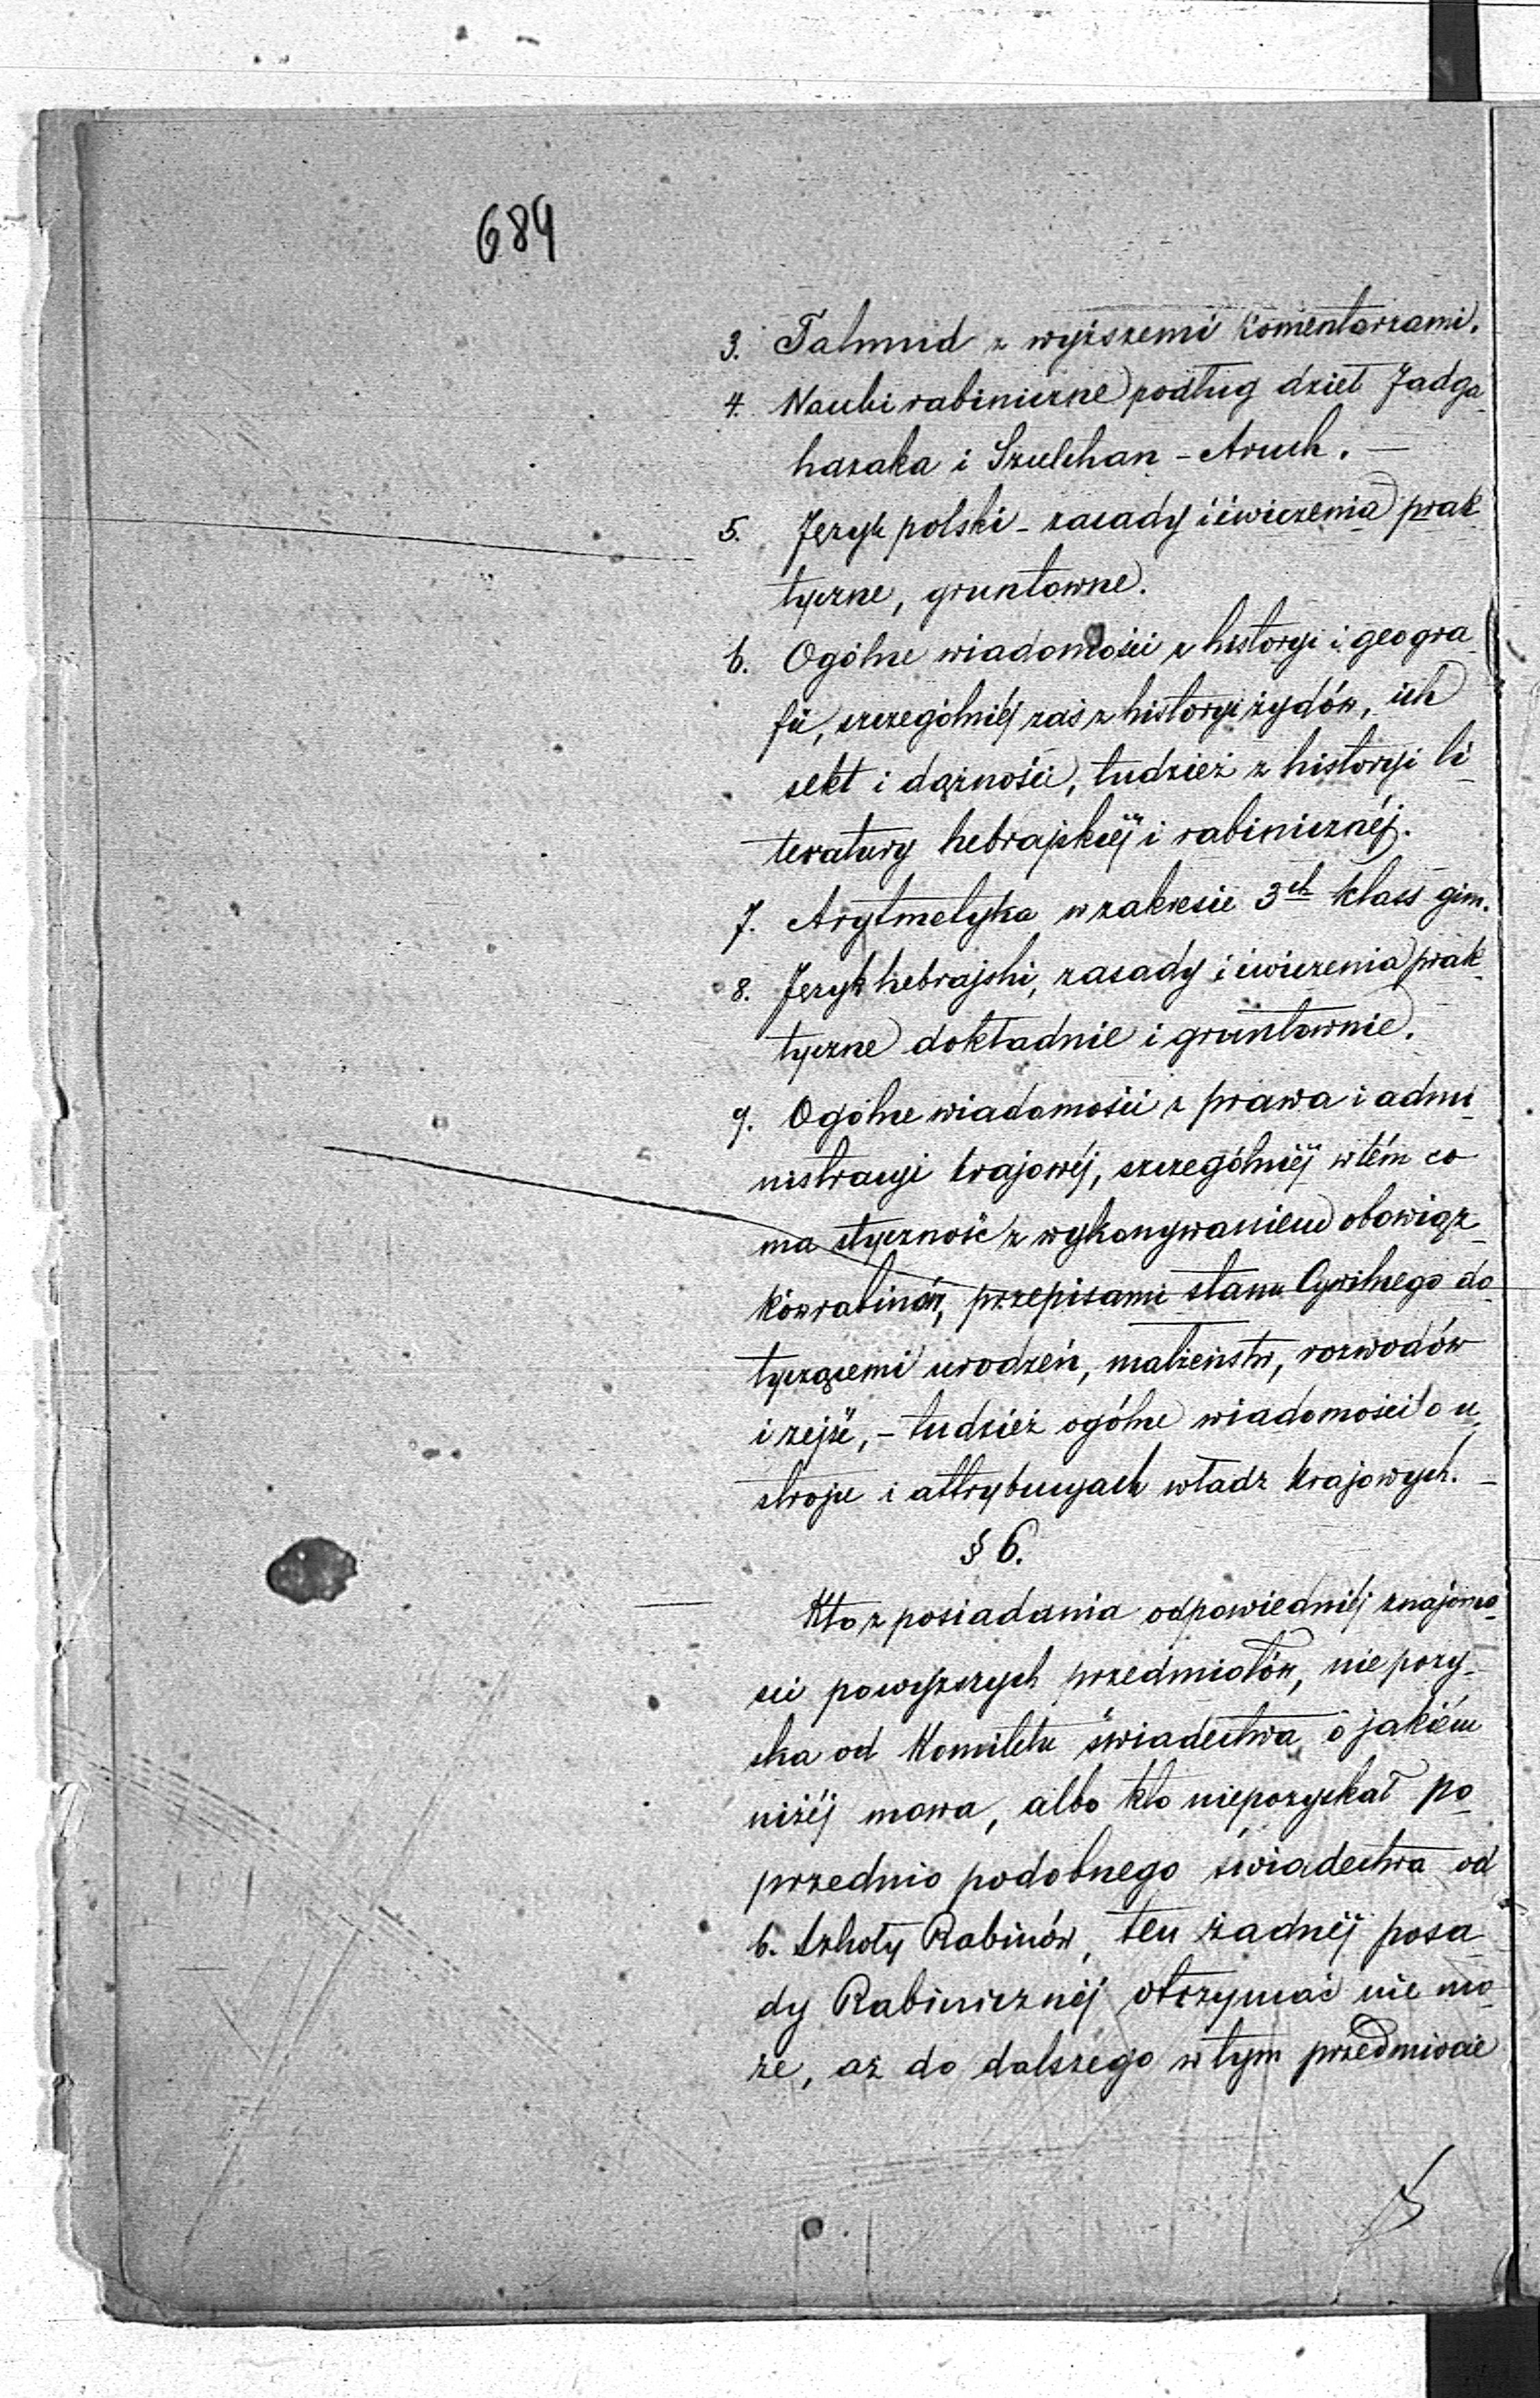 689
3. Talmud z wyższemi komentarzami.
4. Nauki rabiniczne podług dzieł Jadga-
hazaka i Szulchan-Aruch. —
5. Język polski - zasady i ćwiczenia prak
tyczne, gruntowne.
6. Ogólne wiadomości z historyi i geogra-
fii, szczególniéj zaś z historyi żydów, ich
sekt i dążności, tudzież z historyi li-
teratury hebrajskiéj i rabinicznéj.
7. Arytmetyka w zakresie 3ch klass gim.
8. Język hebrajski, zasady i ćwiczenia prak-
tyczne dokładnie i gruntownie.
9. Ogólne wiadomości z prawa i admi-
nistracyi krajowéj, szczególniéj w tém co
ma styczność z wykonywaniem obowiąz-
ków rabinów, przepisami stanu Cywilnego do-
tyczącemi urodzeń, małżeństw, rozwodów
i zejść, - tudzież ogólne wiadomości o u-
stroju i attrybucyach władz krajowych. —
§ 6.
Kto z posiadania odpowiedniéj znajomo-
ści powyższych przedmiotów, nie pozy-
ska od Komitetu świadectwa o jakiém
niżéj mowa, albo kto niepozyskał po-
przednio podobnego świadectwa od
b. Szkoły Rabinów, ten żadnéj posa-
dy Rabinicznéj otrzymać nie mo-
że, aż do dalszego w tym przedmiocie